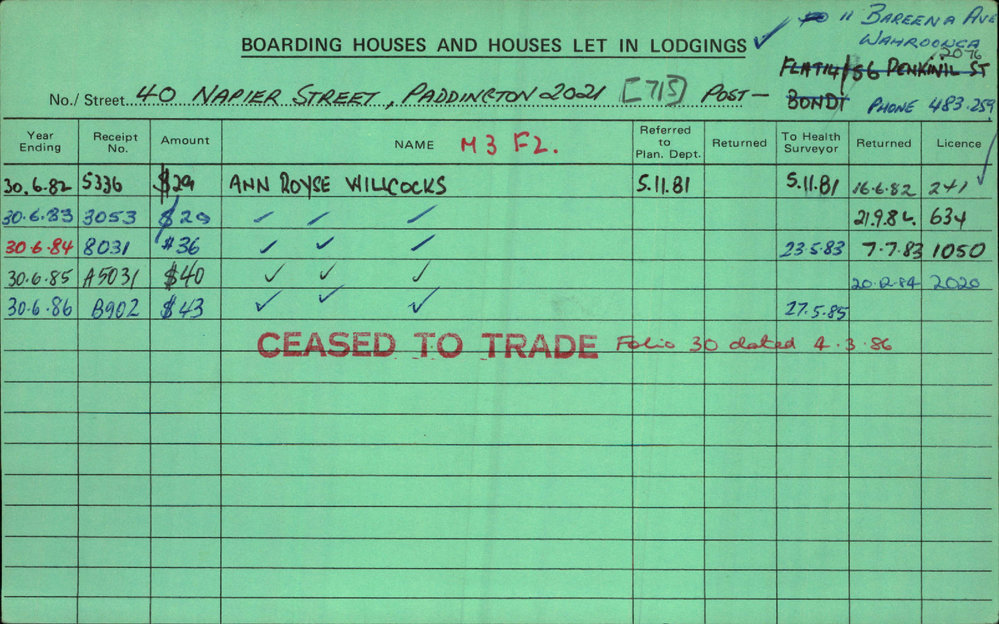 11 BAREENA AVE
WAHROONGA
2076
BOARDING HOUSES AND HOUSES LET IN LODGINGS ✓
FLAT 14/56 PENKINIL ST
BONDI
No./ Street 40 NAPIER STREET, PADDINGTON 2021 [715] POST —
PHONE 483.259
Year Ending Receipt No. Amount NAME M3 F2. Referred to Plan. Dept. Returned To Health Surveyor Returned Licence
30.6.82 5336 $29 ANN ROYSE WILLCOCKS 5.11.81 5.11.81 16.6.82 241 ✓
30.6.83 3053 $29 ✓ ✓ ✓ 21.9.82 634
30.6.84 8031 $36 ✓ ✓ ✓ 23.5.83 7.7.83 1050
30.6.85 A5031 $40 ✓ ✓ ✓ 20.12.84 2020
30.6.86 B902 $43 ✓ ✓ ✓ 27.5.85
CEASED TO TRADE Folio 30 dated 4.3.86